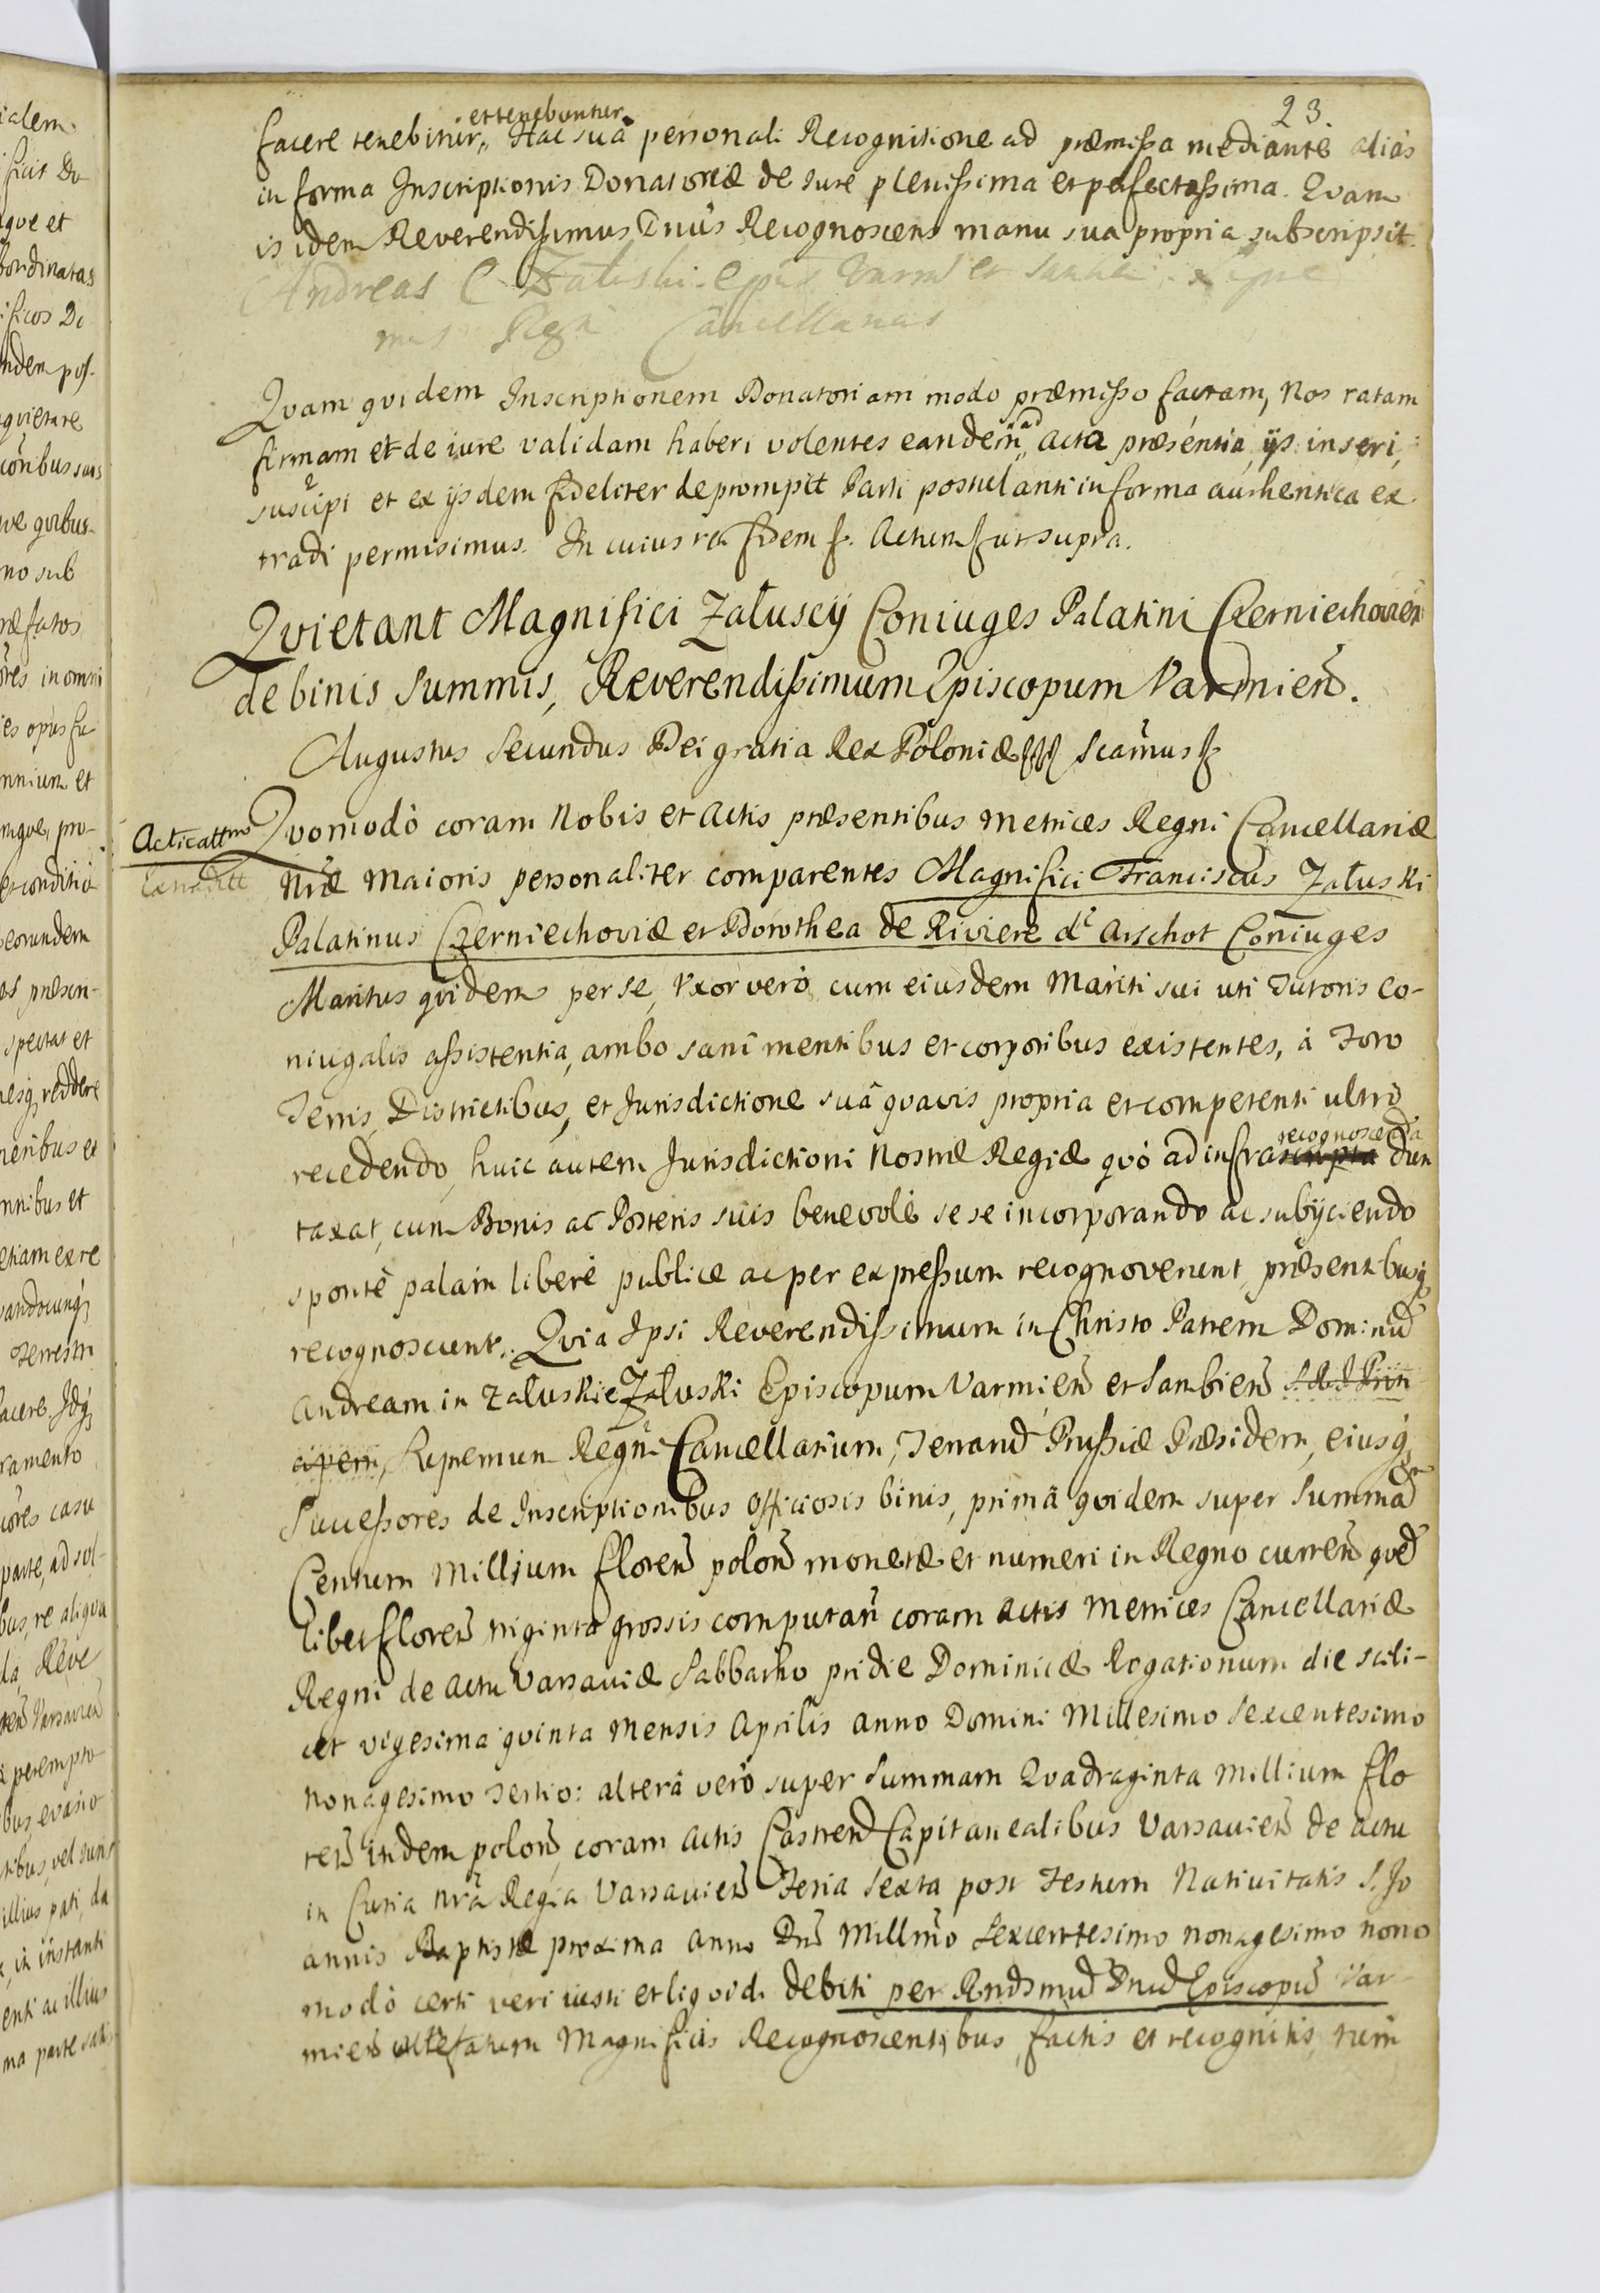 23.
et tenebuntur
facere tenebitur,, Hac suâ personali Recognitione ad præmissa mediantè aliàs
in forma Inscriptionis Donatoriæ de iure plenissima et perfectissima. Qvam
is idem Reverendissimus Dnus Recognoscens manu sua propria subscripsit.
Andreas C Załuski Epus Varm et Samb
Regn Cancellarius
Qvam qvidem Inscriptionem Donatoriam modo præmisso factam, Nos ratam
firmam et de iure validam haberi volentes eandem,, ad acta præsentia, ijs inseri,
suscipi et ex ijsdem fideliter depromptt Parti postulanti in forma authentica ex
tradi permisimus. In cuius rei fidem &. Actum & ut supra.
Qvietant Magnifici Załuscÿ Coniuges Palatini Czerniechovien
de binis Summis, Reverendissimum Episcopum Varmien.
Augustus Secundus Dei gratia Rex Poloniæ &&& Scamus &
Acticattmo
Extraditt
Qvomodò coram Nobis et Actis præsentibus Metrices Regni Cancellariæ
Nræ Maioris personaliter comparentes Magnifici Franciscus Załuski
Palatinus Czerniechoviæ et Dorothea de Riviere d' Arschot Coniuges
Maritus qvidem per se, Uxor verò cum eiusdem Mariti sui uti Tutoris co-
niugalis assistentia, ambo sani mentibus et corporibus existentes, à Foro
Terris, Districtibus, et Jurisdictione suâ qvavis propria et competenti ultrò
recedendo, huic autem Jurisdictioni Nostræ Regiæ qvò ad infrascripta recognoscenda dun
taxat, cum Bonis ac Posteris suis benevolè sese incorporando ac subijciendo
spontè palam liberè publicè ac per expressum recognoverunt, præsentibusq
recognoscunt. Qvia Ipsi Reverendissimum in Christo Patrem Dominu
Andream in Załuskie Załuski Episcopum Varmien et Sambien S.R.I. Prin
cipem, Supremum Regni Cancellarium, Terraru Prussiæ Præsidem, eiusq
Successores de Inscriptionibus officiosis binis, primâ qvidem super Summa
Centum Millium floren polon monetæ et numeri in Regno curren qve
libet floren triginta grossis computan coram Actis Metrices Cancellariæ
Regni de actu Varsaviæ Sabbatho pridie Dominicæ Rogationum die scili-
cet vigesima qvinta Mensis Aprilis Anno Domini Millesimo Sexcentesimo
Nonagesimo Tertio: alterâ verò super Summam Qvadraginta Millium flo
ren itidem polon, coram Actis Castren Capitanealibus Varsavien de actu
in Curia Nra Regia Varsavien Feria Sexta post Festum Nativitatis S. Jo
annis Baptistæ proxima Anno Dni Millmo Sexcentesimo Nonagesimo nono
modò certi veri iusti et liqvidi debiti per Rndsmu Dnu Episcopu Var
mien Magnificis Recognoscentibus, factis et recognitis, tum